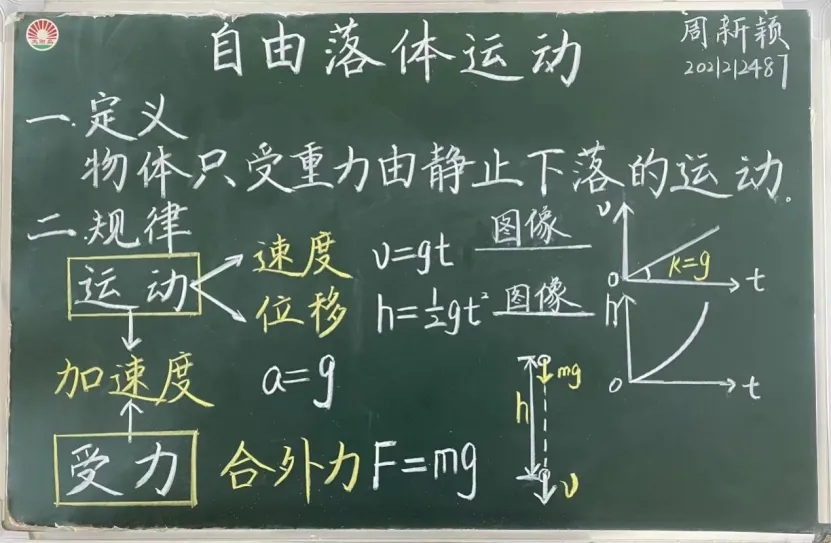 自由落体运动
周新颖
2021212487
一.定义
物体只受重力由静止下落的运动。
二.规律
运动
速度 v=gt 图像
位移 h=½gt² 图像
v
K=g
0
t
h
0
t
加速度 a=g
受力 合外力 F=mg
mg
h
v